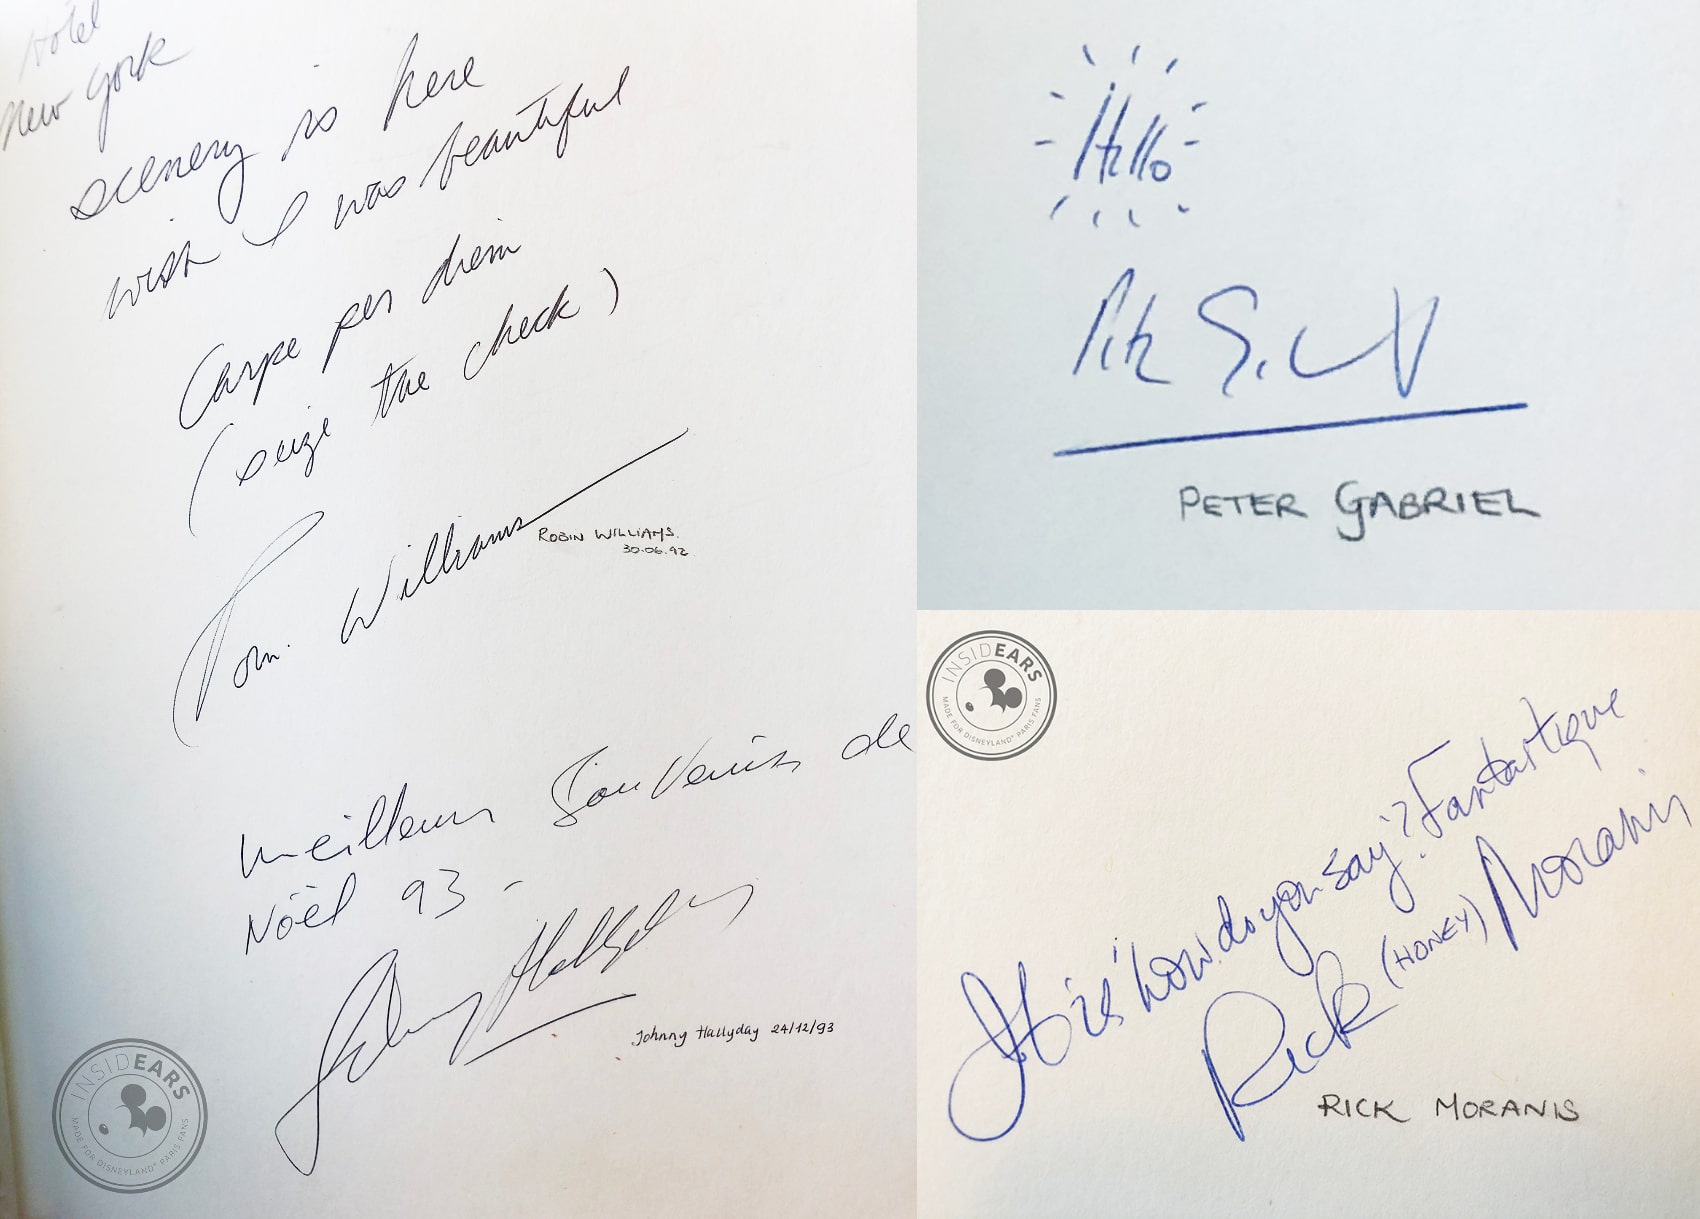 Hotel
New York
scenery is here
wish I was beautiful
Carpe per diem
(seize the check)
Robin Williams
ROBIN WILLIAMS.
30.06.92
Meilleurs Souvenirs de
Nöel 93 -
Johnny Hallyday
Johnny Hallyday 24/12/93
INSIDEARS
MADE FOR DISNEYLAND® PARIS FANS
Hello
Peter Gabriel
PETER GABRIEL
INSIDEARS
MADE FOR DISNEYLAND® PARIS FANS
It is 'how do you say'? Fantastique
Rick (HONEY) Moranis
RICK MORANIS